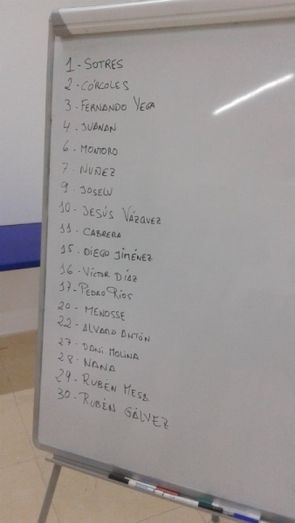 1 - SOTRES
2 - CÓRCOLES
3 - FERNANDO VEGA
4 - JUANAN
6 - MONTORO
7 - NUÑEZ
9 - JOSELU
10 - JESÚS VÁZQUEZ
11 - CABRERA
15 - DIEGO JIMÉNEZ
16 - VÍCTOR DÍAZ
17 - PEDRO RÍOS
20 - MENOSSE
22 - ALVARO ANTÓN
27 - DANI MOLINA
28 - NANA
29 - RUBEN MESA
30 - RUBÉN GÁLVEZ